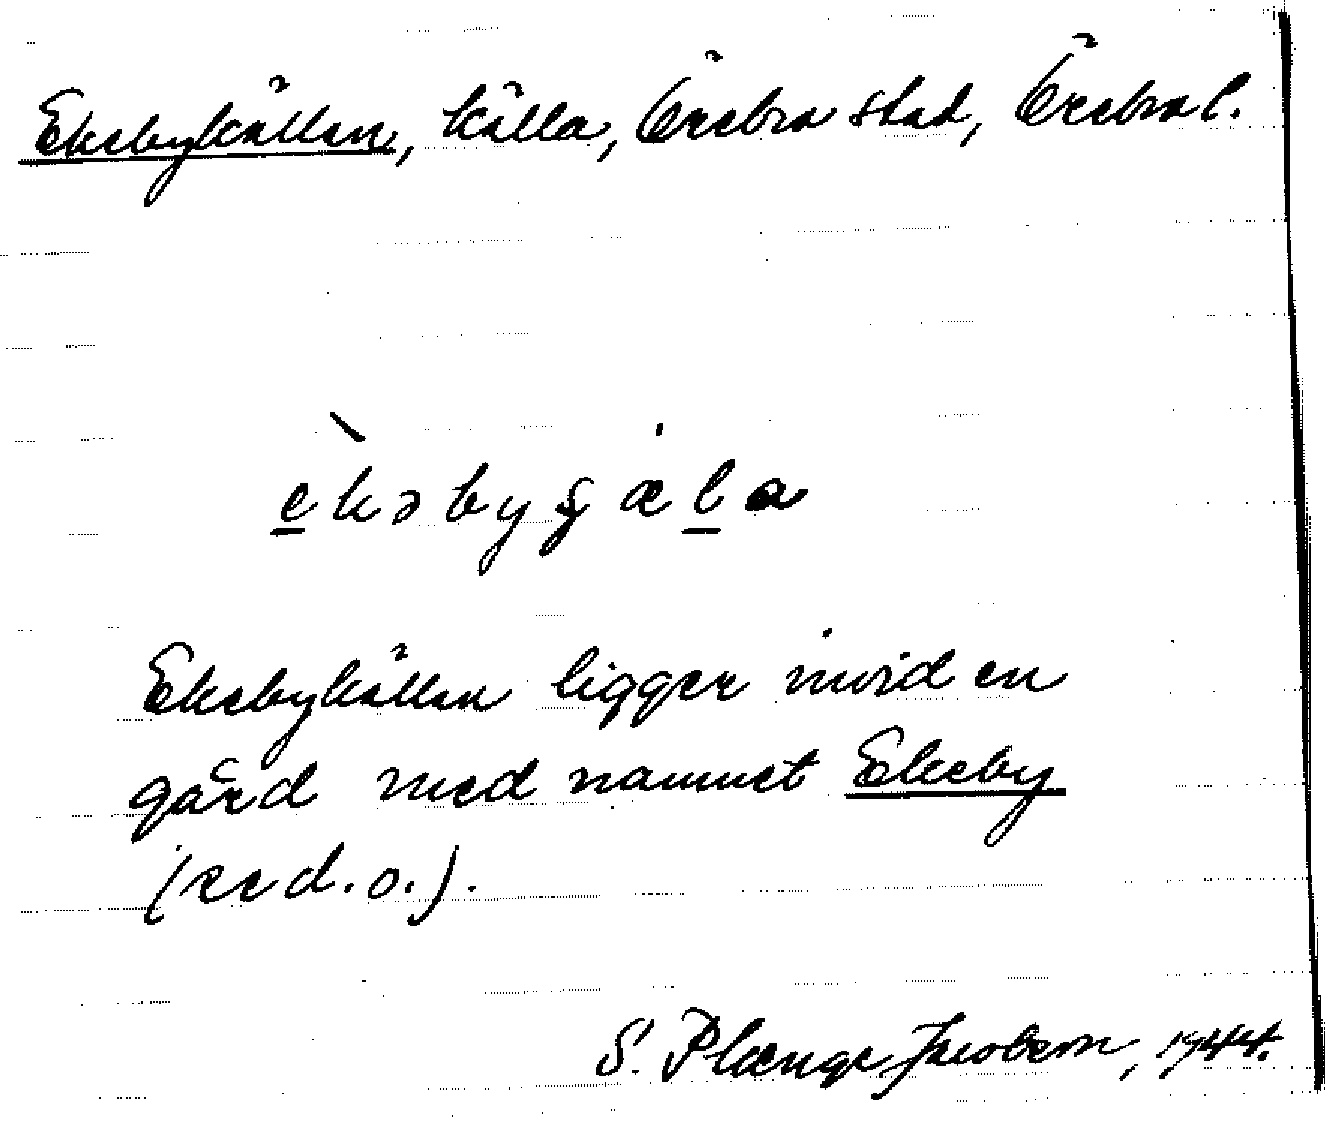 Ekebykällan, källa, Örebro stad, Örebro l.
èkəbyɕæ̇la
Ekebykällan ligger invid en
gård med namnet Ekeby
(se d. o.).
S. Plænge Jacobson, 1944.